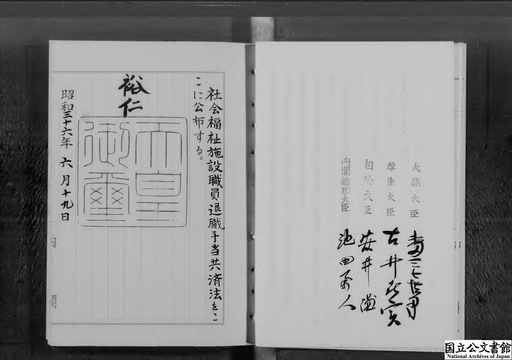 社会福祉施設職員退職手当共済法をこ
こに公布する。
裕仁
天皇
御璽
昭和三十六年六月十九日
大蔵大臣
厚生大臣 古井喜実
自治大臣 安井謙
内閣総理大臣 池田勇人
国立公文書館
National Archives of Japan